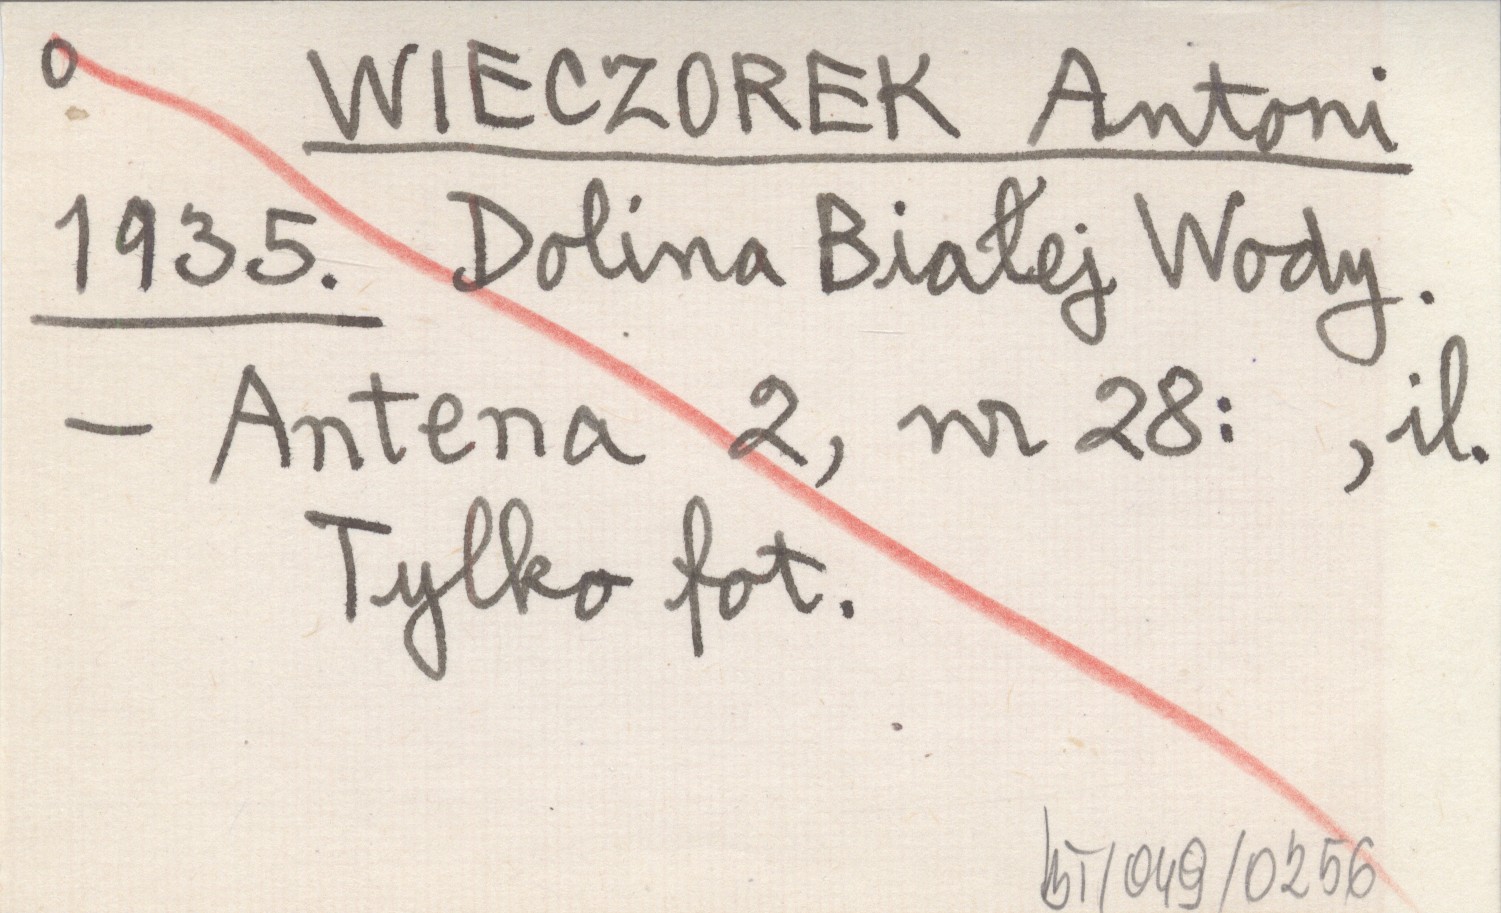 o WIECZOREK Antoni
1935. Dolina Białej Wody.
– Antena 2, nr 28: , il.
Tylko fot.
BT/049/0256